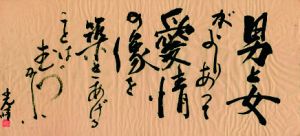 男と女
がよりあって
愛情
の像を
築きあげる
ことは